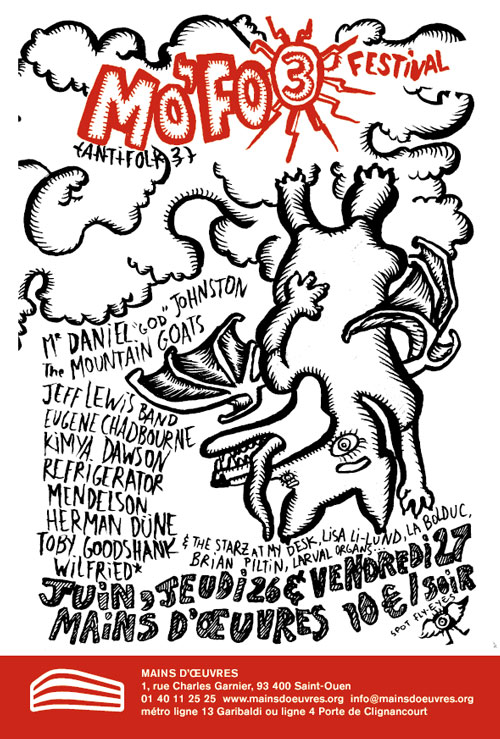 MO'FO 3 FESTIVAL
(ANTIFOLK 3)
Mr DANIEL "GOD" JOHNSTON
The MOUNTAIN GOATS
JEFF LEWIS BAND
EUGENE CHADBOURNE
KIMYA DAWSON
REFRIGERATOR
MENDELSON
HERMAN DÜNE
TOBY GOODSHANK
WILFRIED*
& THE STARZ AT MY DESK, LISA LI-LUND, LA BOLDUC,
BRIAN PILTIN, LARVAL ORGANS...
JUIN, JEUDI 26 & VENDREDI 27
MAINS D'ŒUVRES 10€/SOIR
SPOT FLY-EYES
MAINS D'ŒUVRES
1, rue Charles Garnier, 93 400 Saint-Ouen
01 40 11 25 25 www.mainsdoeuvres.org info@mainsdoeuvres.org
métro ligne 13 Garibaldi ou ligne 4 Porte de Clignancourt